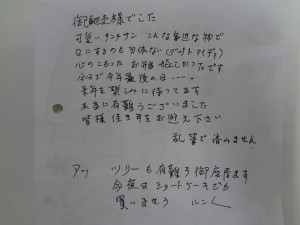 御馳走様でした
可愛いサンタサン こんな身近な物で
口にするのも勿体ない(グットアイデア)
心のこもったお弁当嬉しかったです
今日で今年最後の日・・・。
来年を楽しみに待ってます
本当に有難うございました
皆様佳き年をお迎え下さい
乱筆で済みません
アッ ツリーも有難う御座居ます
今夜はショートケーキでも
買いませう ルンルン